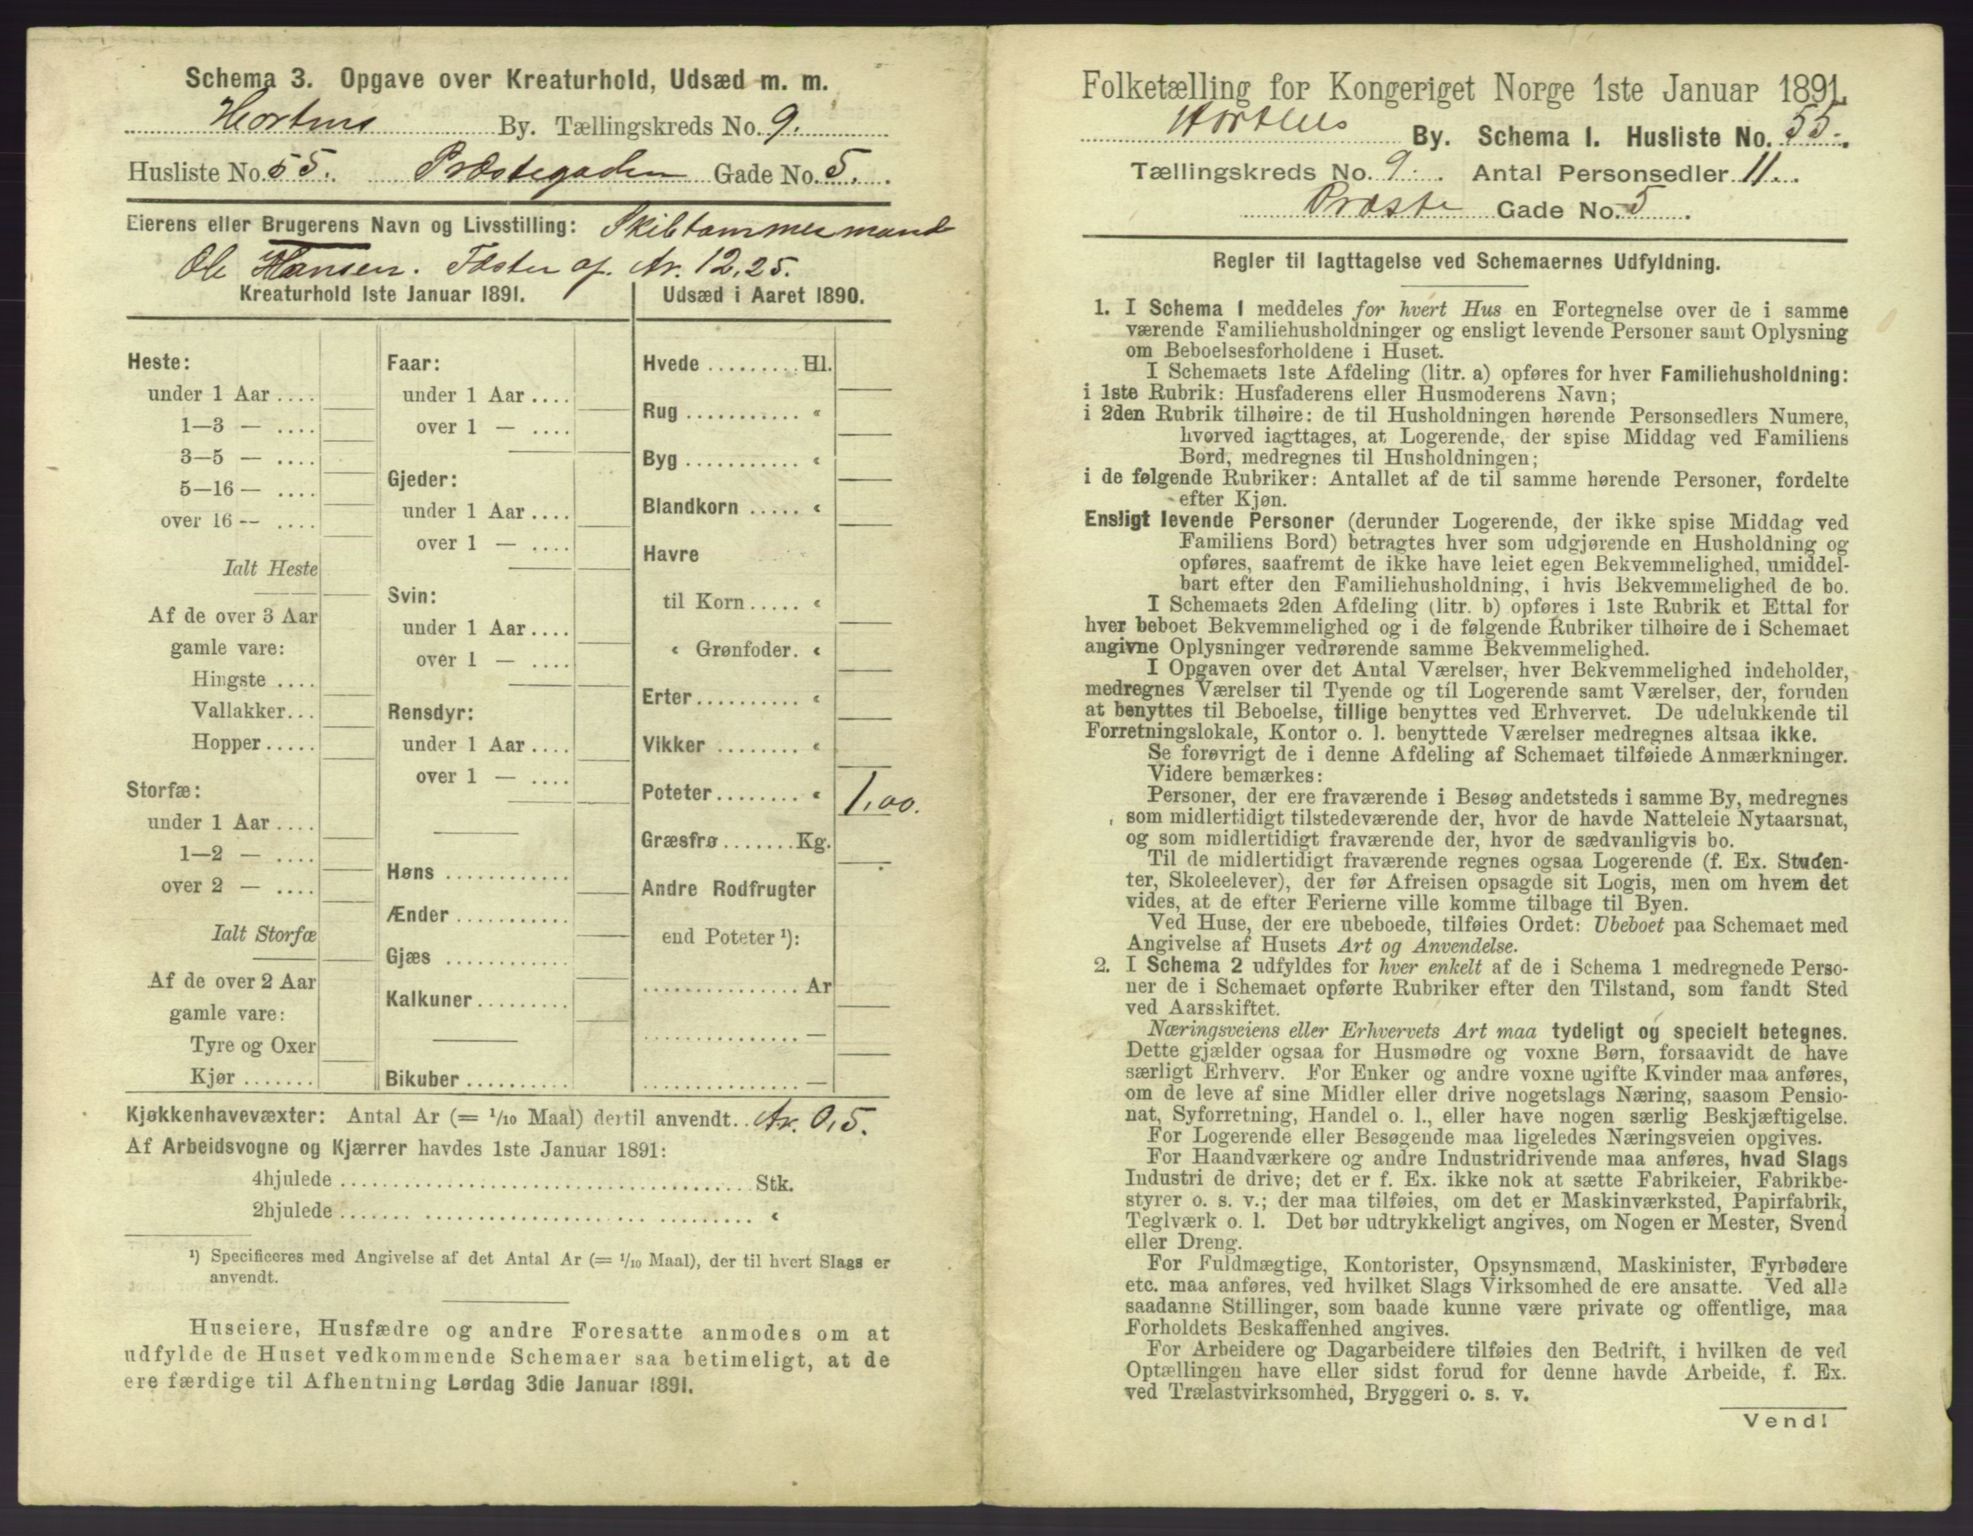 Schema 3. Opgave over Kreaturhold, Udsæd m. m.
Hortens By. Tællingskreds No. 9.
Husliste No. 55. Præstegaden Gade No. 5.
Eierens eller Brugerens Navn og Livsstilling: Skibtømmermand
Ole Hansen. Fæster af Ar. 12,25.
Kreaturhold 1ste Januar 1891.
Heste:
under 1 Aar ....
1—3 — ....
3—5 — ....
5—16 — ....
over 16 — ....
Ialt Heste
Af de over 3 Aar
gamle vare:
Hingste ....
Vallakker...
Hopper.....
Storfæ:
under 1 Aar ....
1—2 — ....
over 2 — ....
Ialt Storfæ
Af de over 2 Aar
gamle vare:
Tyre og Oxer
Kjør .......
Faar:
under 1 Aar ....
over 1 — ....
Gjeder:
under 1 Aar ....
over 1 — ....
Svin:
under 1 Aar ....
over 1 — ....
Rensdyr:
under 1 Aar ....
over 1 — ....
Høns ............
Ænder ...........
Gjæs ............
Kalkuner.........
Bikuber ..........
Udsæd i Aaret 1890.
Hvede ......... Hl.
Rug ........... "
Byg ........... "
Blandkorn ..... "
Havre
til Korn..... "
" Grønfoder. "
Erter.......... "
Vikker ........ "
Poteter........ " 1,00.
Græsfrø ....... Kg.
Andre Rodfrugter
end Poteter ¹):
............... Ar
............... —
............... —
Kjøkkenhavevæxter: Antal Ar (= 1/10 Maal) dertil anvendt.. Ar. 0,5.
Af Arbeidsvogne og Kjærrer havdes 1ste Januar 1891:
4hjulede ........................................ Stk.
2hjulede ........................................ "
¹) Specificeres med Angivelse af det Antal Ar (= 1/10 Maal), der til hvert Slags er
anvendt.
Huseiere, Husfædre og andre Foresatte anmodes om at
udfylde de Huset vedkommende Schemaer saa betimeligt, at de
ere færdige til Afhentning Lørdag 3die Januar 1891.
Folketælling for Kongeriget Norge 1ste Januar 1891.
Hortens By. Schema I. Husliste No. 55.
Tællingskreds No. 9. Antal Personsedler 11.
Præste Gade No. 5.
Regler til Iagttagelse ved Schemaernes Udfyldning.
1. I Schema 1 meddeles for hvert Hus en Fortegnelse over de i samme
værende Familiehusholdninger og ensligt levende Personer samt Oplysning
om Beboelsesforholdene i Huset.
I Schemaets 1ste Afdeling (litr. a) opføres for hver Familiehusholdning:
i 1ste Rubrik: Husfaderens eller Husmoderens Navn;
i 2den Rubrik tilhøire: de til Husholdningen hørende Personsedlers Numere,
hvorved iagttages, at Logerende, der spise Middag ved Familiens
Bord, medregnes til Husholdningen;
i de følgende Rubriker: Antallet af de til samme hørende Personer, fordelte
efter Kjøn.
Ensligt levende Personer (derunder Logerende, der ikke spise Middag ved
Familiens Bord) betragtes hver som udgjørende en Husholdning og
opføres, saafremt de ikke have leiet egen Bekvemmelighed, umiddel-
bart efter den Familiehusholdning, i hvis Bekvemmelighed de bo.
I Schemaets 2den Afdeling (litr. b) opføres i 1ste Rubrik et Ettal for
hver beboet Bekvemmelighed og i de følgende Rubriker tilhøire de i Schemaet
angivne Oplysninger vedrørende samme Bekvemmelighed.
I Opgaven over det Antal Værelser, hver Bekvemmelighed indeholder,
medregnes Værelser til Tyende og til Logerende samt Værelser, der, foruden
at benyttes til Beboelse, tillige benyttes ved Erhvervet. De udelukkende til
Forretningslokale, Kontor o. l. benyttede Værelser medregnes altsaa ikke.
Se forøvrigt de i denne Afdeling af Schemaet tilføiede Anmærkninger.
Videre bemærkes:
Personer, der ere fraværende i Besøg andetsteds i samme By, medregnes
som midlertidigt tilstedeværende der, hvor de havde Natteleie Nytaarsnat,
og som midlertidigt fraværende der, hvor de sædvanligvis bo.
Til de midlertidigt fraværende regnes ogsaa Logerende (f. Ex. Studen-
ter, Skoleelever), der før Afreisen opsagde sit Logis, men om hvem det
vides, at de efter Ferierne ville komme tilbage til Byen.
Ved Huse, der ere ubeboede, tilføies Ordet: Ubeboet paa Schemaet med
Angivelse af Husets Art og Anvendelse.
2. I Schema 2 udfyldes for hver enkelt af de i Schema 1 medregnede Perso-
ner de i Schemaet opførte Rubriker efter den Tilstand, som fandt Sted
ved Aarsskiftet.
Næringsveiens eller Erhvervets Art maa tydeligt og specielt betegnes.
Dette gjælder ogsaa for Husmødre og voxne Børn, forsaavidt de have
særligt Erhverv. For Enker og andre voxne ugifte Kvinder maa anføres,
om de leve af sine Midler eller drive nogetslags Næring, saasom Pensio-
nat, Syforretning, Handel o. l., eller have nogen særlig Beskjæftigelse.
For Logerende eller Besøgende maa ligeledes Næringsveien opgives.
For Haandværkere og andre Industridrivende maa anføres, hvad Slags
Industri de drive; det er f. Ex. ikke nok at sætte Fabrikeier, Fabrikbe-
styrer o. s. v.; der maa tilføies, om det er Maskinværksted, Papirfabrik,
Teglværk o. l. Det bør udtrykkeligt angives, om Nogen er Mester, Svend
eller Dreng.
For Fuldmægtige, Kontorister, Opsynsmænd, Maskinister, Fyrbødere
etc. maa anføres, ved hvilket Slags Virksomhed de ere ansatte. Ved alle
saadanne Stillinger, som baade kunne være private og offentlige, maa
Forholdets Beskaffenhed angives.
For Arbeidere og Dagarbeidere tilføies den Bedrift, i hvilken de ved
Optællingen have eller sidst forud for denne havde Arbeide, f. Ex.
ved Trælastvirksomhed, Bryggeri o. s. v.
Vend!